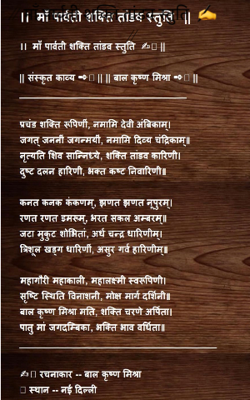 ।। माँ पार्वती शक्ति तांडव स्तुति ॥
।। माँ पार्वती शक्ति तांडव स्तुति ✍️ ||
|| संस्कृत काव्य || || बाल कृष्ण मिश्रा ||
प्रचंड शक्ति रूपिणीं, नमामि देवी अंबिकाम्।
जगत् जननीं जगन्मयीं, नमामि दिव्य चंद्रिकाम्॥
नृत्यति शिव सान्निध्ये, शक्ति तांडव कारिणी।
दुष्ट दलन हारिणी, भक्त कष्ट निवारिणी॥
कनत कनक कंकणम्, झणत झणत नूपुरम्।
रणत रणत डमरूम्, भरत सकल अम्बरम्॥
जटा मुकुट शोभितां, अर्ध चन्द्र धारिणीम्।
त्रिशूल खड्ग धारिणीं, असुर गर्व हारिणीम्॥
महागौरी महाकाली, महालक्ष्मी स्वरूपिणी।
सृष्टि स्थिति विनाशनी, मोक्ष मार्ग दर्शिनी॥
बाल कृष्ण मिश्रा मति, शक्ति चरणे अर्पिता।
पातु मां जगदम्बिका, भक्ति भाव वर्धिता॥
✍️ रचनाकार -- बाल कृष्ण मिश्रा
स्थान -- नई दिल्ली